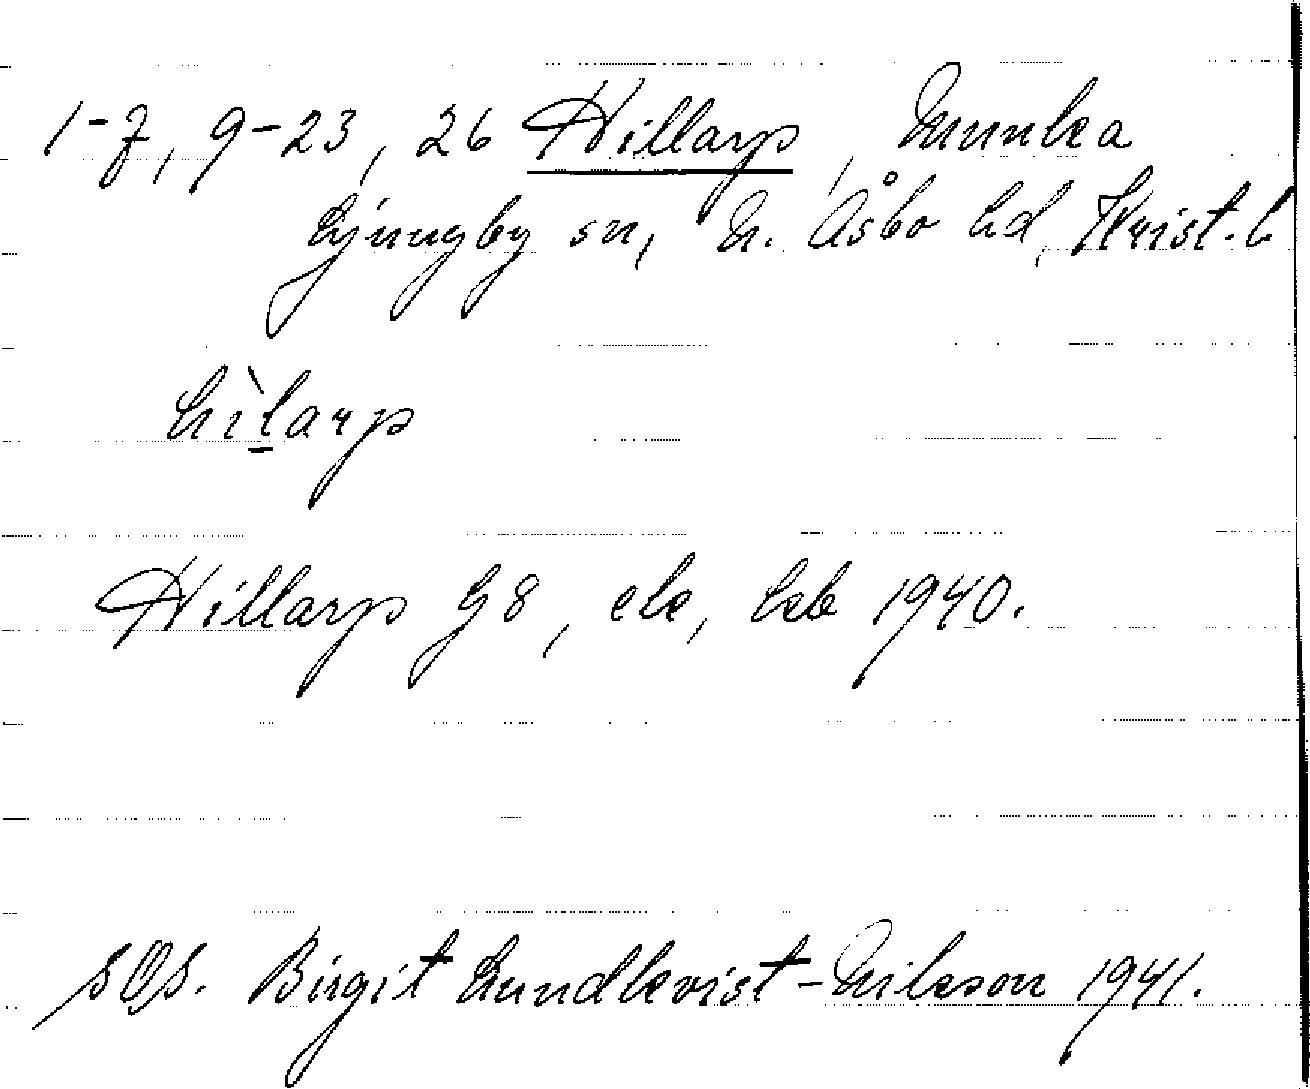 1-7, 9-23, 26 Hillarp, Munka
Ljungby sn, N. Åsbo hd, Krist. l.
hìlarp
Hillarp G8, ek, kb 1940.
SOS. Birgit Lundkvist-Nilsson 1941.